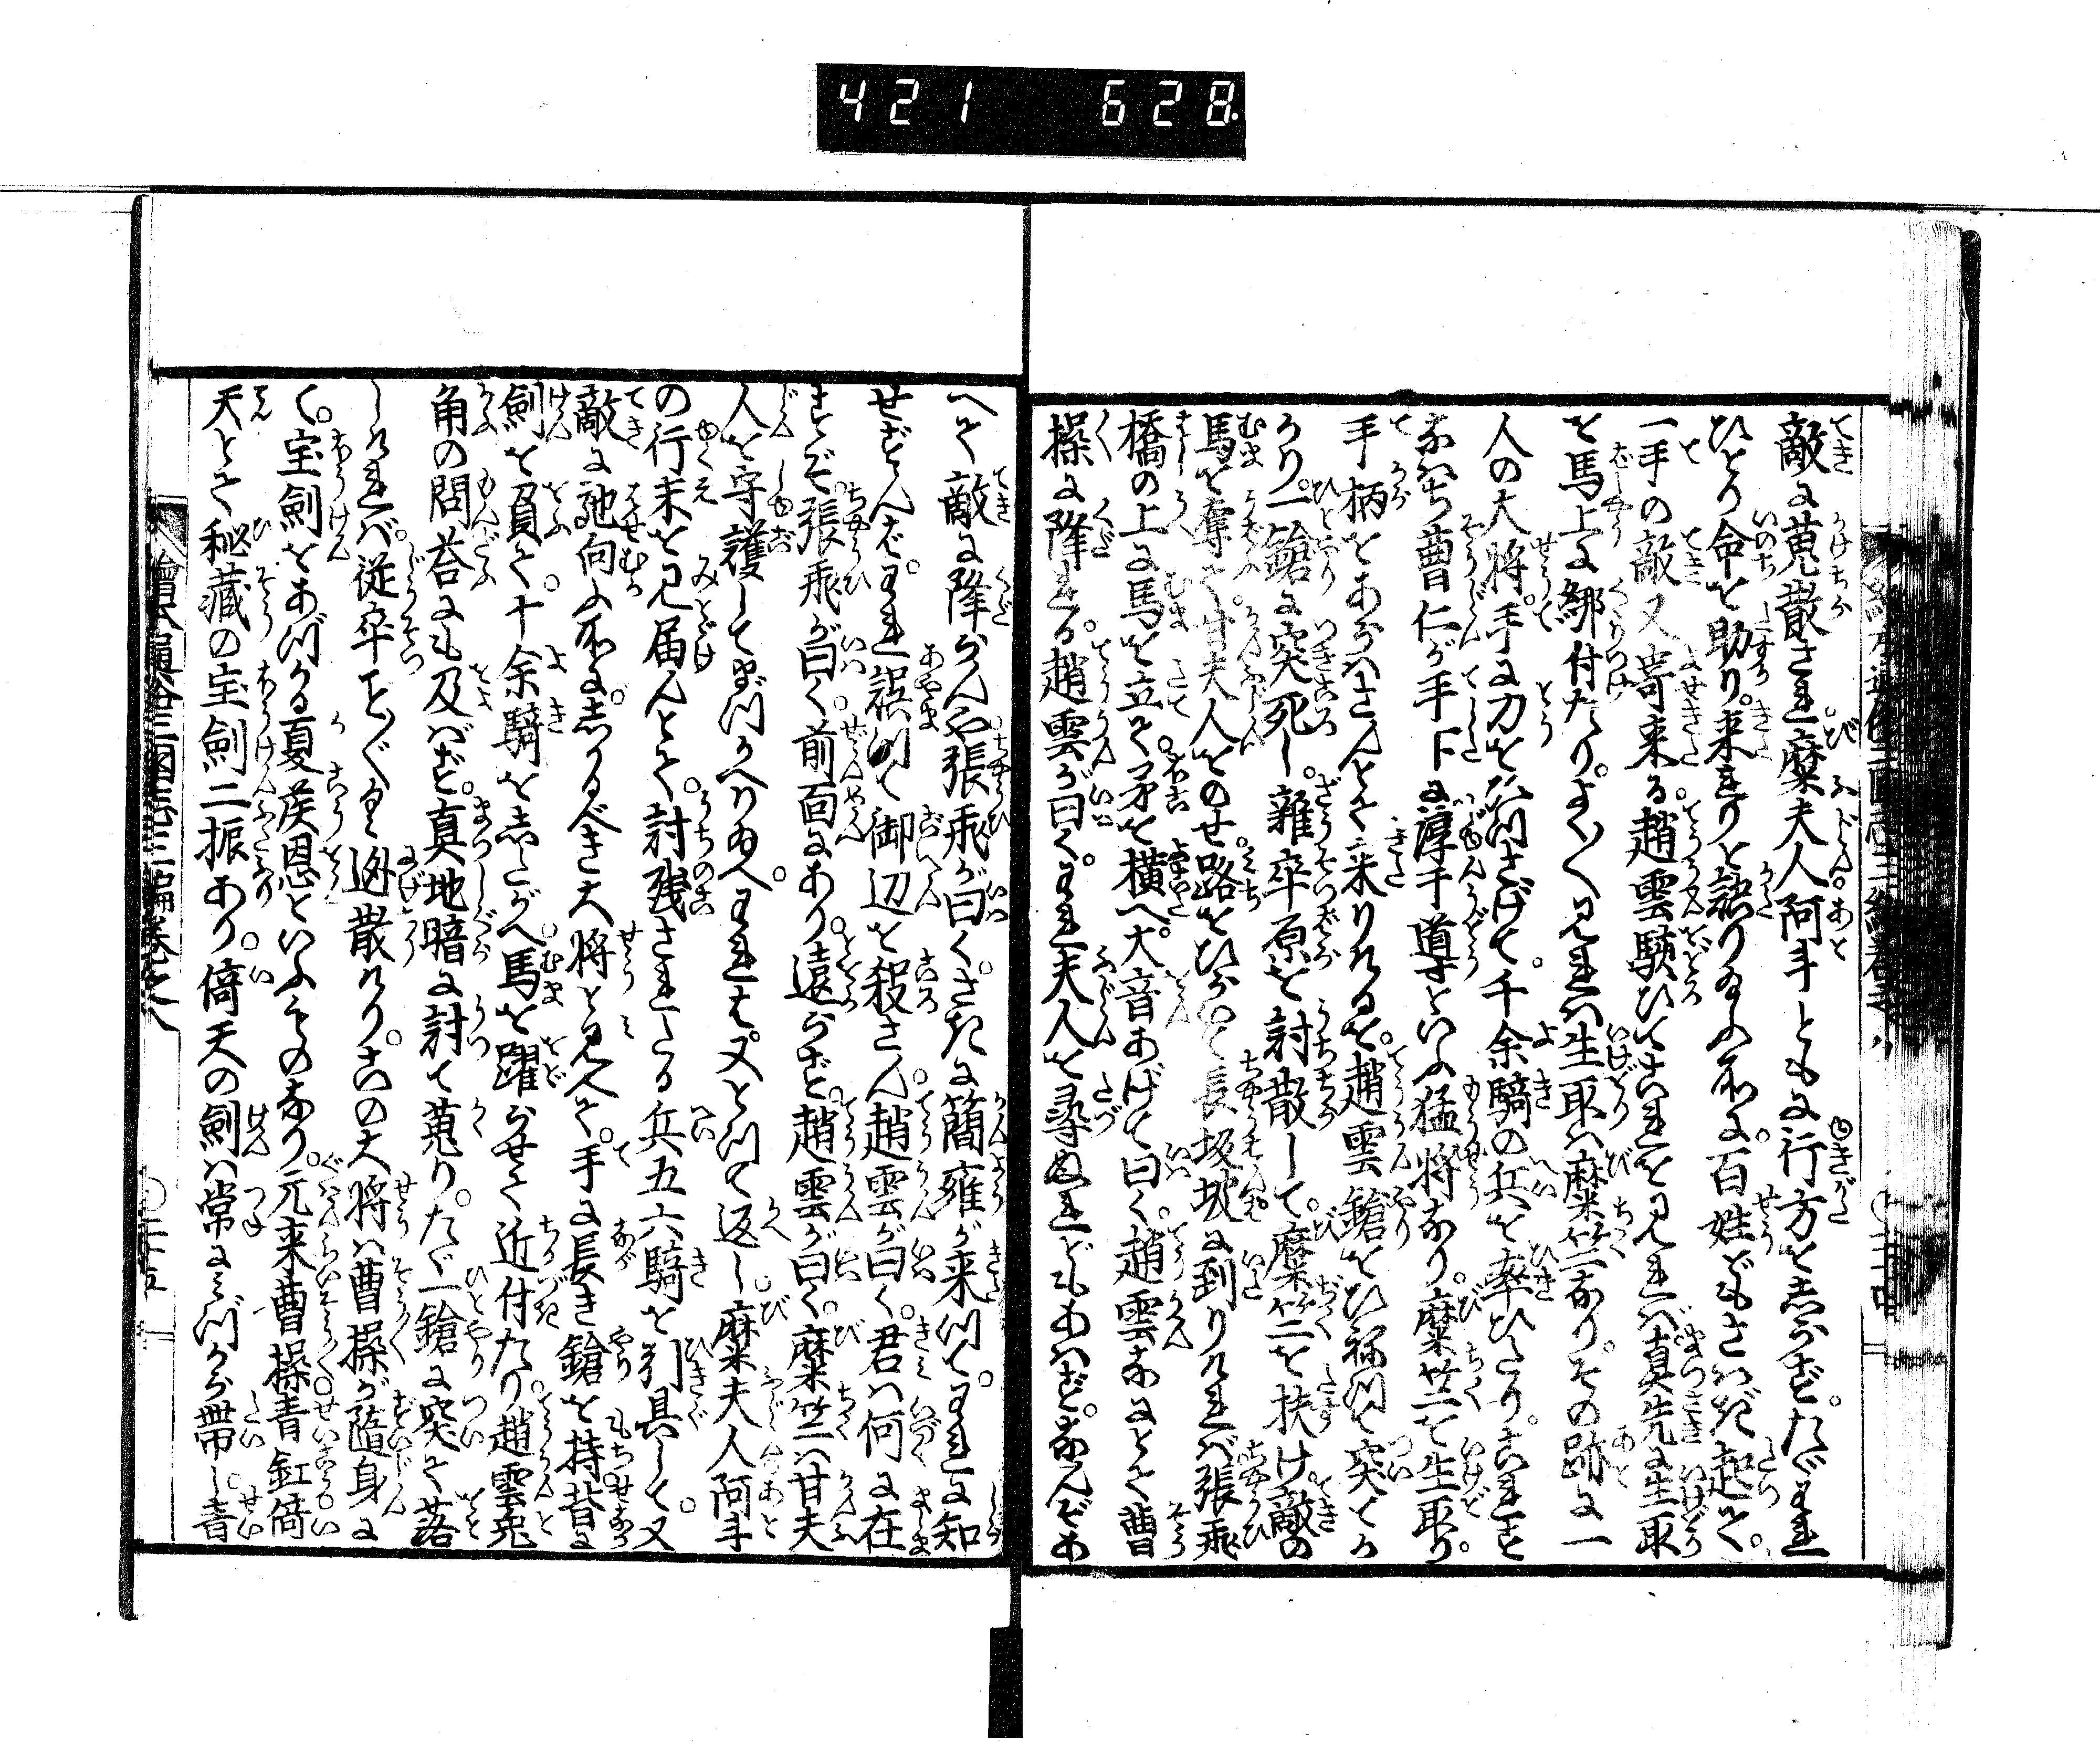 421 628
敵に蒐散され。糜夫人阿斗ともに行方をしらず。たゞわれ
ひとり命を助り。来れりと語り給ふ所に。百姓どもさはぎ起て。
一手の敵又寄来る。趙雲駭ひてこれを見れば真先に生取
を馬上に綁付たり。よく〳〵見れば生取は糜竺なり。その跡に一
人の大将。手に刀をひつさげて。千余騎の兵を率ひたり。これを
なはち曹仁が手下に淳于導といふ猛将なり。糜竺を生取り。
手柄をあらはさんとて来りけるを。趙雲鎗をひねつて突てか
かり。一鎗に突死し。雑卒原を討散して。糜竺を扶け。敵の
馬を奪て。甘夫人をのせ。路をひらいて長坂坡に到りければ張飛
橋の上に馬を立て。矛を横へ。大音あげて曰く。趙雲なにとて曹
操に降れる。趙雲が曰く。われ夫人を尋ぬれどもあはず。なんぞあ
へて敵に降らんや。張飛が曰く。さきに簡雍が来つて。われに知
せずんば。われ誤つて御辺を殺さん。趙雲が曰く。君は何に在
ますぞ。張飛が曰く。前面にあり。遠からず。趙雲が曰く。糜竺は甘夫
人を守護してまづかへり給へ。われは又とつて返し。糜夫人阿斗
の行末を見届んとて。討残されたる兵五六騎を引具して。又
敵に馳向ふ所に。しかるべき大将と見へて。手に長き鎗を持。背に
劍を負て。十余騎をしたがへ。馬を躍らせて近付たり。趙雲兎
角の問答にも及ばず。真地暗に討て蒐り。たゞ一鎗に突て落
しければ。従卒こと〴〵く迯散けり。この大将は曹操が隨身に
て。宝劍をあづかる夏侯恩といふものなり。元来曹操。青釭倚
天とて秘蔵の宝劍二振あり。倚天の劍は常にみづから帶し。青
繪本通俗三國志三編卷之八
二十五